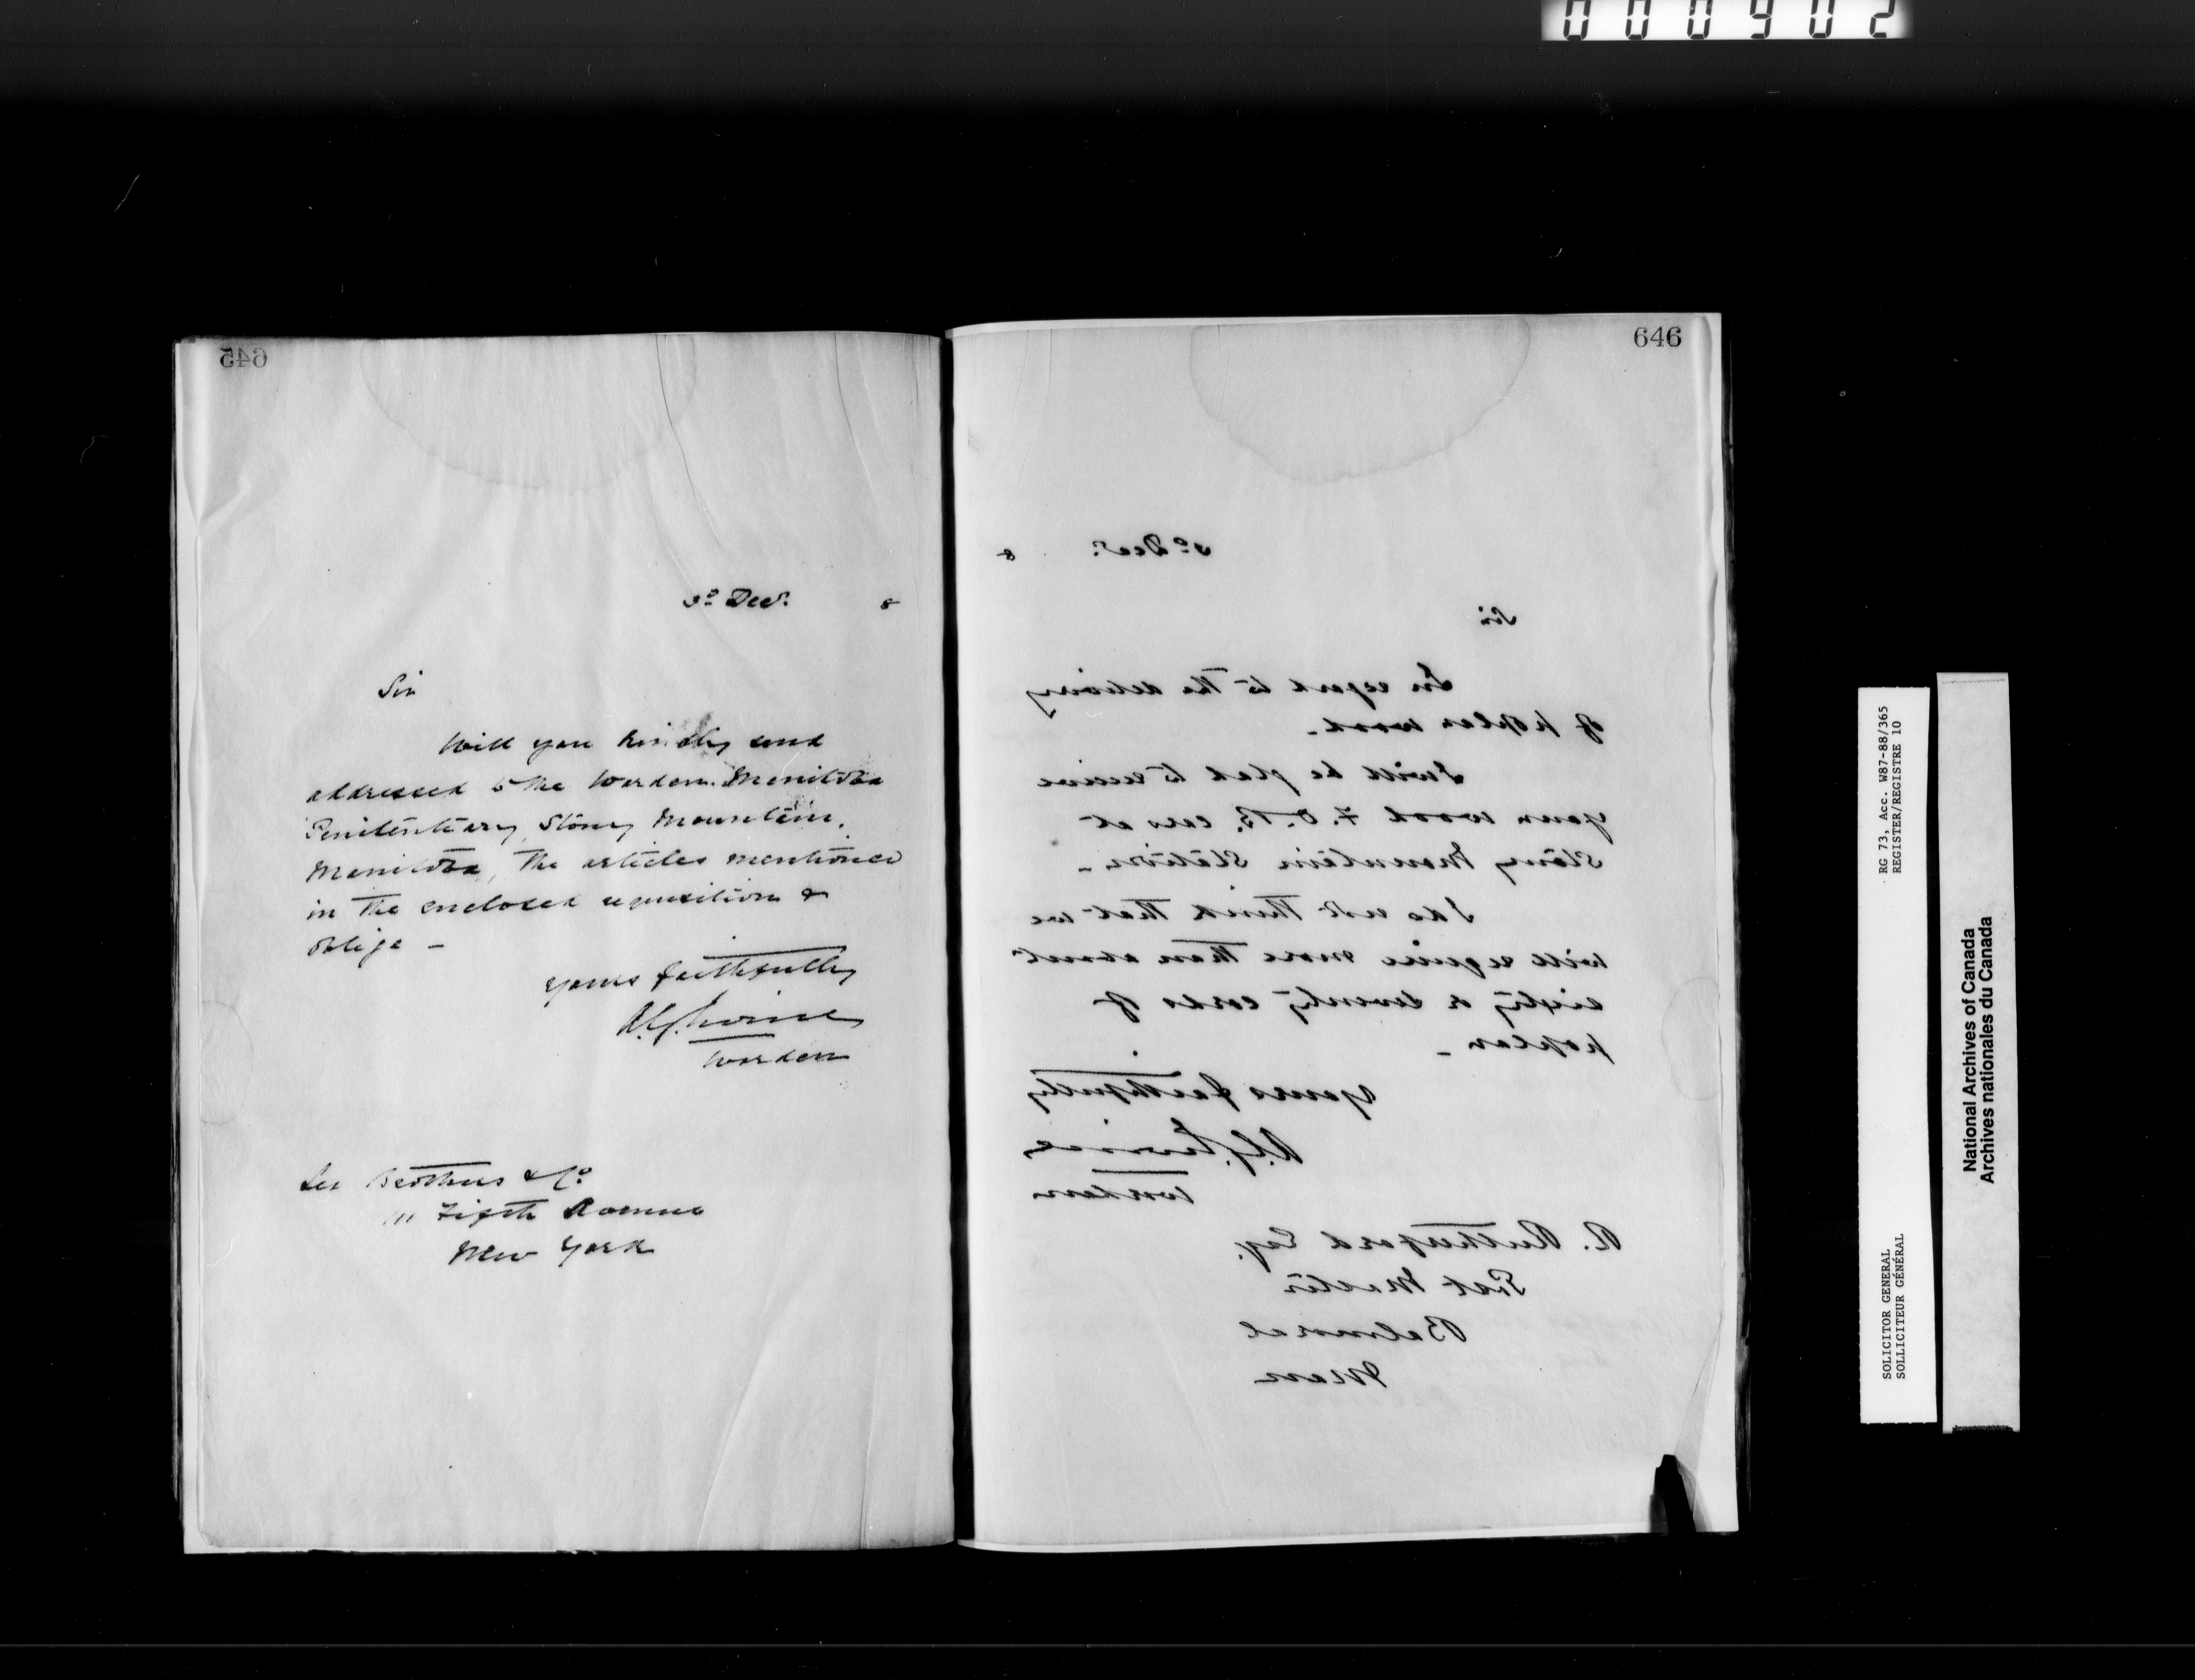 000902
645
3º Decr. 8
Sir
Will you kindly send
addressed to the Warden Manitoba
Penitentiary, Stony Mountain,
Manitoba, the articles mentioned
in the enclosed requisition &
oblige -
Yours faithfully
A.G. Irvine
Warden
Brothers & Co
111 Fifth Avenue
New York
646
3º Decr. 8
Sir
In regard to the delivery
of poplar wood -
I will be glad to receive
your wood F.O.B. cars at
Stony Mountain Station -
I do not think that we
will require more than about
sixty or seventy cords of
poplar -
Yours faithfully
A.G. Irvine
Warden
R. Rutherford Esq.
Post Master
Balmoral
Man
RG 73, Acc. W87-88/365
REGISTER/REGISTRE 10
SOLICITOR GENERAL
SOLLICITEUR GÉNÉRAL
National Archives of Canada
Archives nationales du Canada